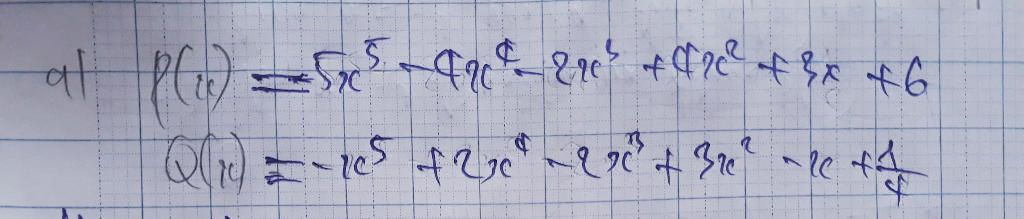 a) P(x) = 5x⁵ - 4x⁴ - 2x³ + 4x² + 3x + 6
Q(x) = -x⁵ + 2x⁴ - 2x³ + 3x² - x + 1/4